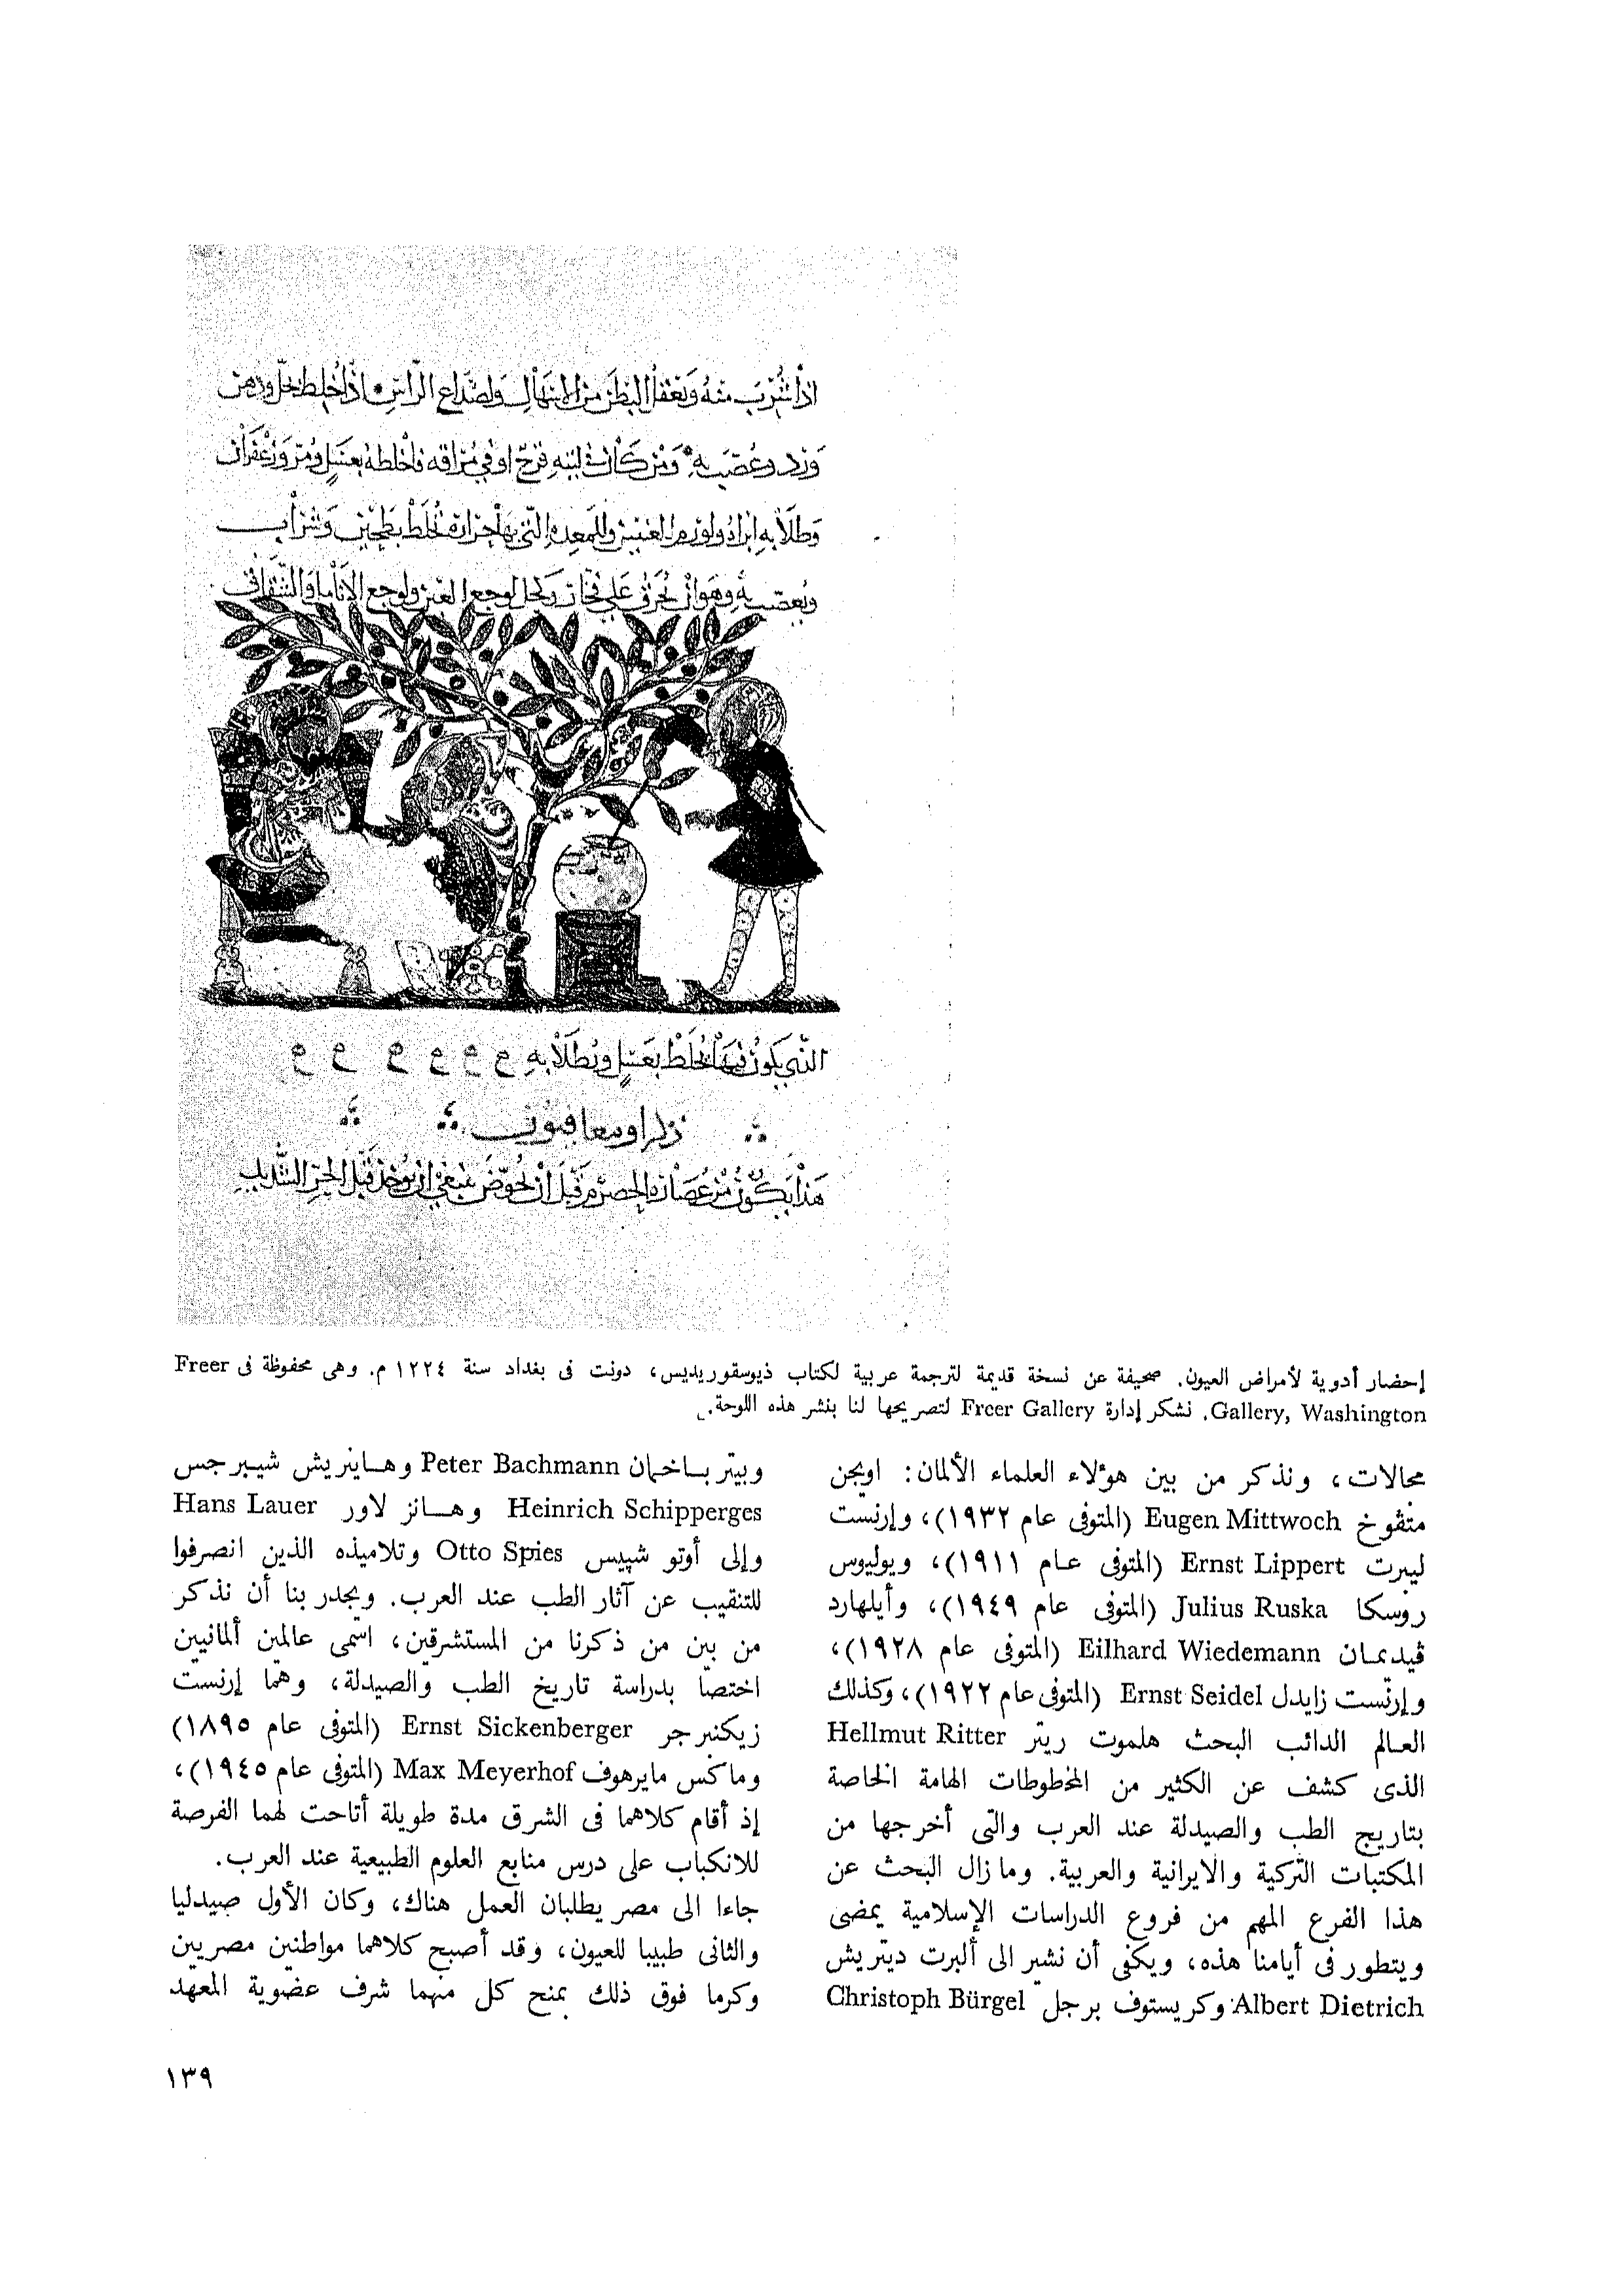 اذا شرب منه ويعقل البطن من الاسهال ولصداع الراس اذا خلط بخل ودهن
ورد وعصب به ومن كان في لثته قرح او في مراقه فاخلطه بعسل ومر وزعفران
وطلا به ابراه ولورم العينين وللمعدة التي بها حرارة تخلط بطحين وشراب
ويعصب به وهو ان يحرق على فخار ويكحل لوجع العين ولوجع
التي يكون فيها يخلط بعسل ويطلا به
هذا يكون من عصارة الحصرم قبل ان يحمض ينبغي ان يوخذ قبل الحر الشديد
إحضار أدوية لأمراض العيون. صحيفة عن نسخة قديمة لترجمة عربية لكتاب ذيوسقوريديس، دونت فى بغداد سنة ١٢٢٤ م. وهى محفوظة فى Freer
Gallery, Washington. نشكر إدارة Freer Gallery لتصريحها لنا بنشر هذه اللوحة.
مجالات، ونذكر من بين هؤلاء العلماء الألمان: اويجن
متڤوخ Eugen Mittwoch (المتوفى عام ١٩٣٢)، وإرنست
ليبرت Ernst Lippert (المتوفى عـام ١٩١١)، ويوليوس
روسكا Julius Ruska (المتوفى عام ١٩٤٩)، وأيلهارد
ڤيديمـان Eilhard Wiedemann (المتوفى عام ١٩٢٨)،
وإرنست زايدل Ernst Seidel (المتوفى عام ١٩٢٢)، وكذلك
العـالم الدائب البحث هلموت ريتر Hellmut Ritter
الذى كشف عن الكثير من المخطوطات الهامة الخاصة
بتاريج الطب والصيدلة عند العرب والتى أخرجها من
المكتبات التركية والايرانية والعربية. وما زال البحث عن
هذا الفرع المهم من فروع الدراسات الإسلامية يمضى
ويتطور فى أيامنا هذه، ويكفى أن نشير الى ألبرت ديتريش
Albert Dietrich وكريستوف برجل Christoph Bürgel
وبيتر بـاخمان Peter Bachmann وهـاينريش شيـبرجس
Heinrich Schipperges وهـانز لاور Hans Lauer
وإلى أوتو شپيس Otto Spies وتلاميذه الذين انصرفوا
للتنقيب عن آثار الطب عند العرب. ويجدر بنا أن نذكر
من بين من ذكرنا من المستشرقين، اسمى عالمين ألمانيين
اختصا بدراسة تاريخ الطب والصيدلة، وهما إرنست
زيكنبرجر Ernst Sickenberger (المتوفى عام ١٨٩٥)
وماكس مايرهوف Max Meyerhof (المتوفى عام ١٩٤٥)،
إذ أقام كلاهما فى الشرق مدة طويلة أتاحت لهما الفرصة
للانكباب على درس منابع العلوم الطبيعية عند العرب.
جاءا الى مصر يطلبان العمل هناك، وكان الأول صيدليا
والثانى طبيبا للعيون، وقد أصبح كلاهما مواطنين مصريين
وكرما فوق ذلك بمنح كل منهما شرف عضوية المعهد
١٣٩